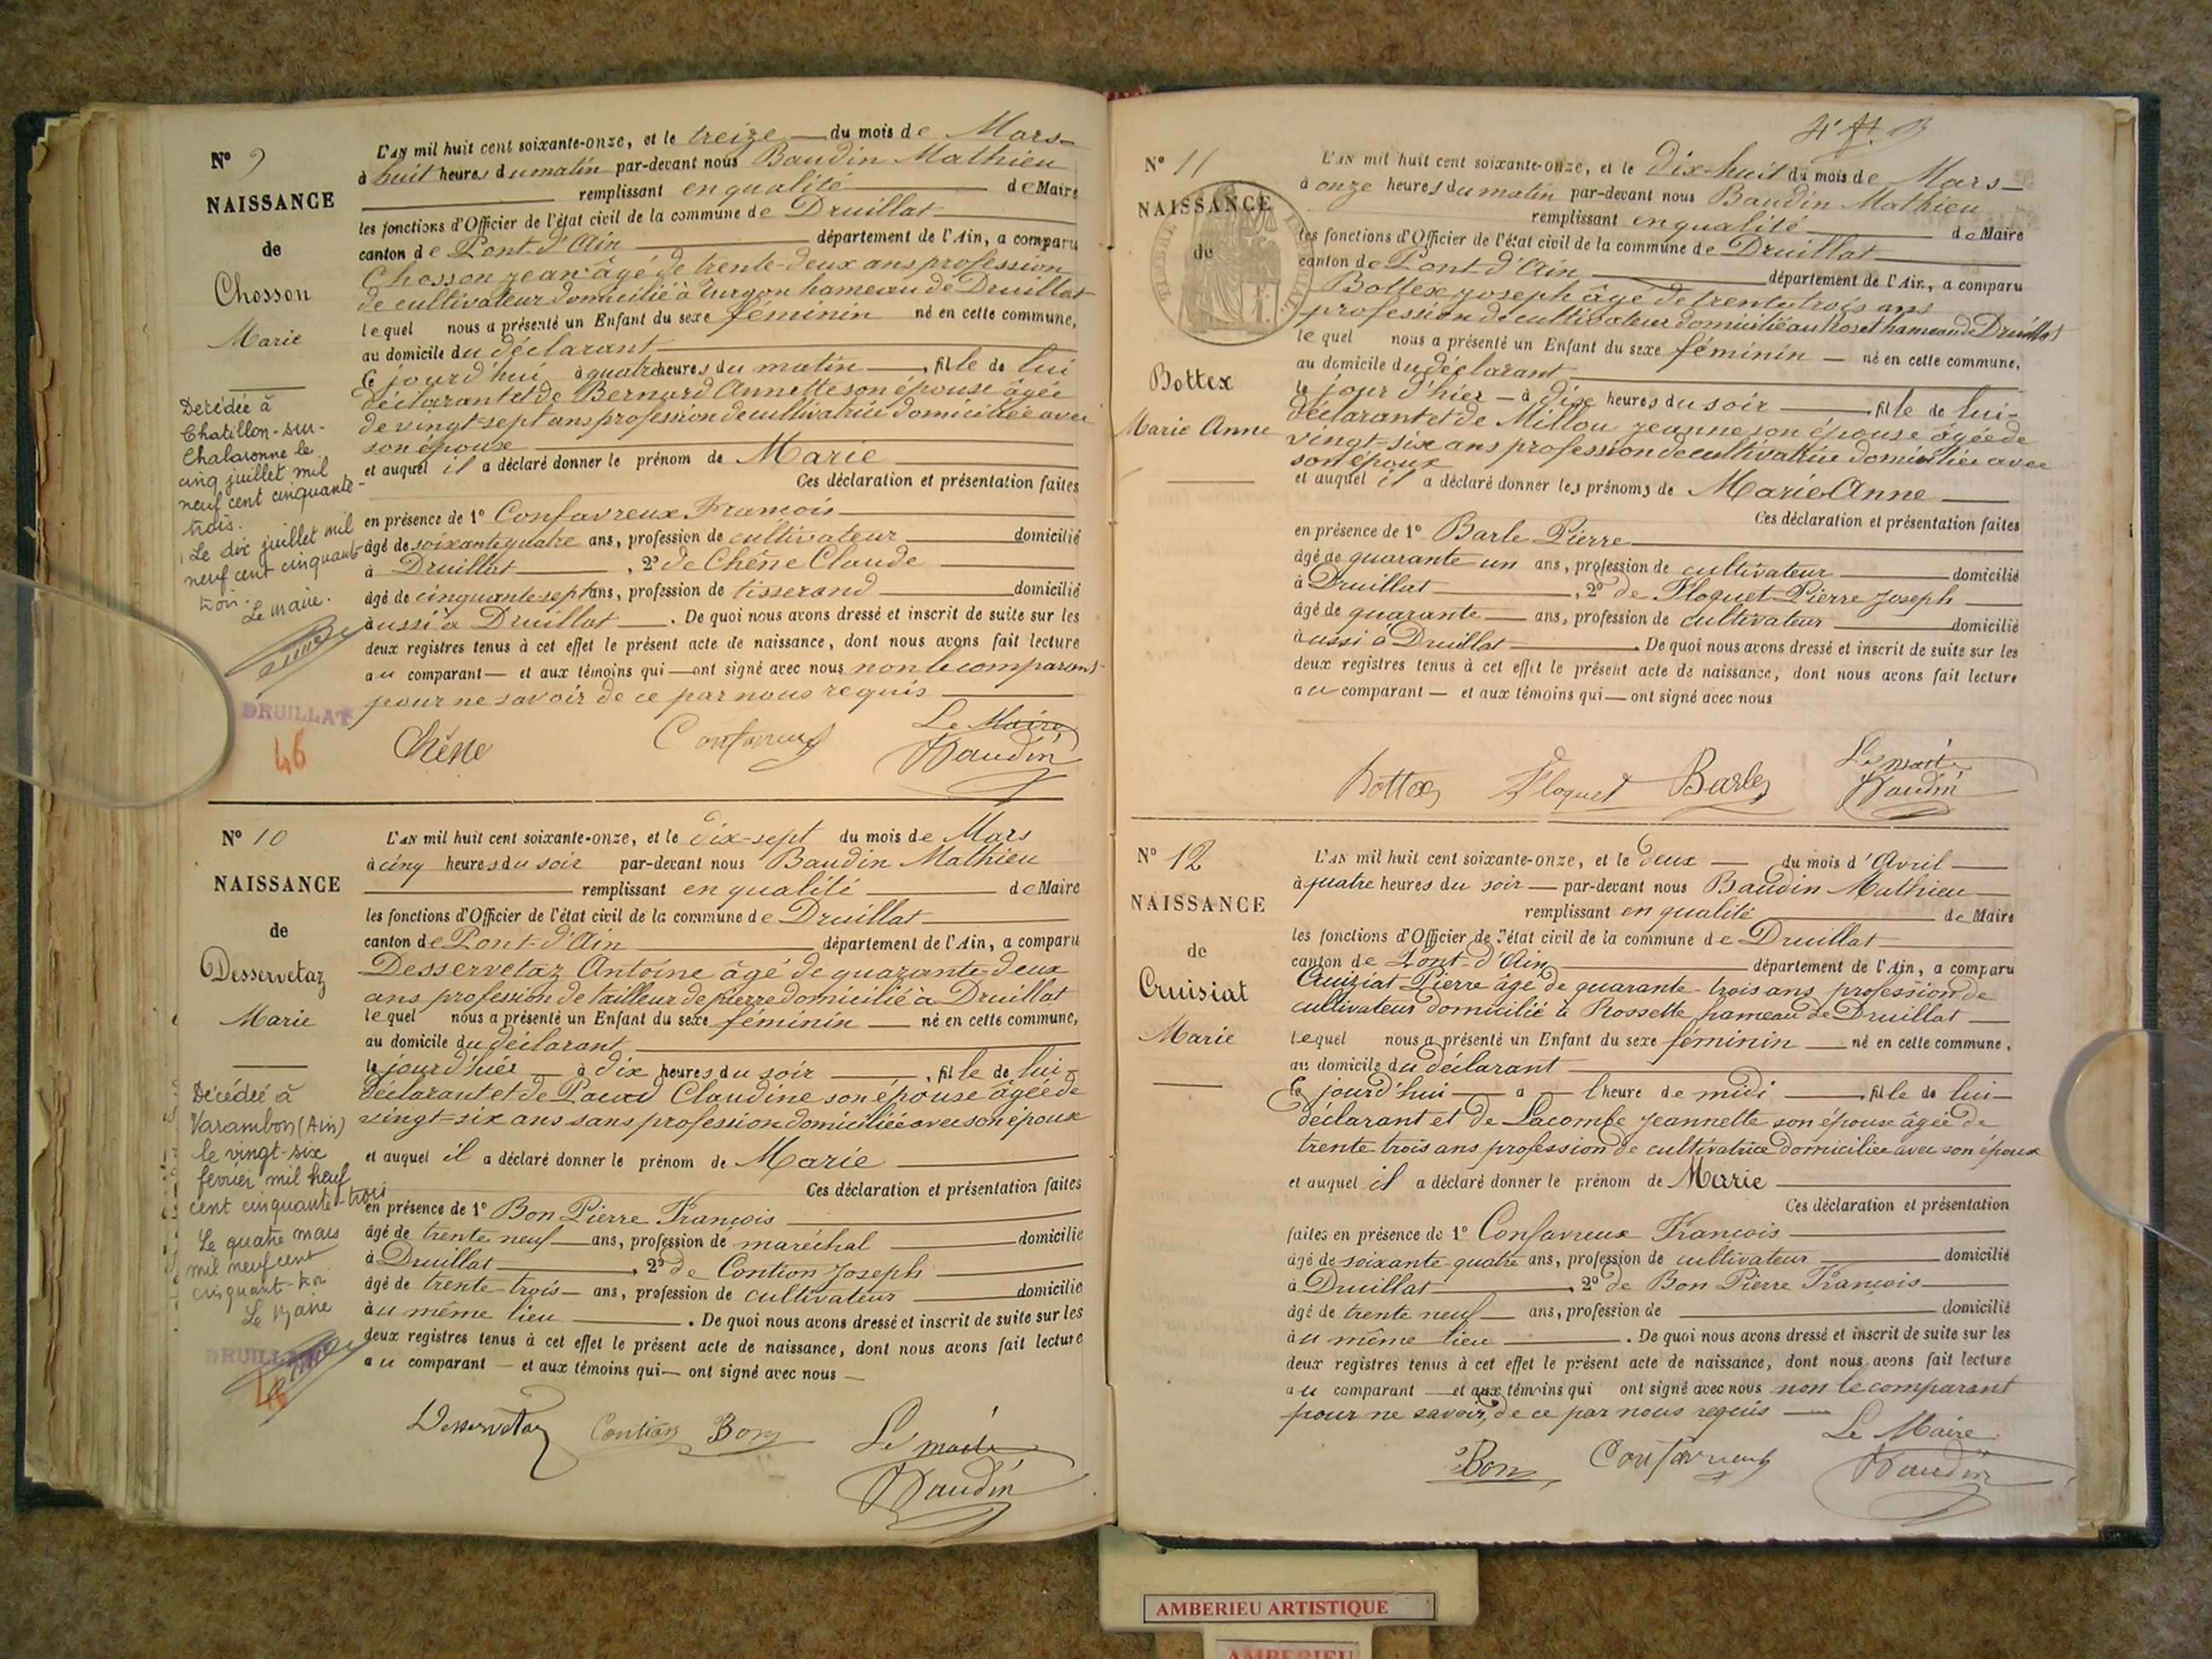 N° 9
NAISSANCE
de
Chosson
Marie
Décédée à
Chatillon-sur-
Chalaronne le
cinq juillet mil
neuf cent cinquante-
trois.
Le dix juillet mil
neuf cent cinquante-
trois.
Le maire.
DRUILLAT
46
L'AN mil huit cent soixante-onze, et le treize du mois de Mars
à huit heures du matin par-devant nous Baudin Mathieu
remplissant en qualité de Maire
les fonctions d'Officier de l'état civil de la commune de Druillat
canton de Pont-d'Ain département de l'Ain, a comparu
Chosson Jean âgé de trente-deux ans profession
de cultivateur domicilié à Turgon hameau de Druillat
lequel nous a présenté un Enfant du sexe féminin né en cette commune,
au domicile du déclarant
ce jourd'hui à quatre heures du matin, fille de lui
déclarant et de Bernard Annette son épouse âgée
de vingt-sept ans profession de cultivatrice domiciliée avec
son épouse
et auquel il a déclaré donner le prénom de Marie
Ces déclaration et présentation faites
en présence de 1° Confavreux François
âgé de soixante quatre ans, profession de cultivateur domicilié
à Druillat, 2° de Chêne Claude
âgé de cinquante sept ans, profession de tisserand domicilié
aussi à Druillat. De quoi nous avons dressé et inscrit de suite sur les
deux registres tenus à cet effet le présent acte de naissance, dont nous avons fait lecture
au comparant et aux témoins qui ont signé avec nous non le comparant
pour ne savoir de ce par nous requis
Chêne Confavreux Le Maire
Baudin
N° 10
NAISSANCE
de
Desservetaz
Marie
Décédée à
Varambon (Ain)
le vingt-six
février mil neuf
cent cinquante-trois
Le quatre mars
mil neuf cent
cinquant-troi
Le Maire
DRUILLAT
46
L'AN mil huit cent soixante-onze, et le dix-sept du mois de Mars
à cinq heures du soir par-devant nous Baudin Mathieu
remplissant en qualité de Maire
les fonctions d'Officier de l'état civil de la commune de Druillat
canton de Pont-d'Ain département de l'Ain, a comparu
Desservetaz Antoine âgé de quarante-deux
ans profession de tailleur de pierre domicilié à Druillat
lequel nous a présenté un Enfant du sexe féminin né en cette commune,
au domicile du déclarant
le jour d'hier à dix heures du soir, fille de lui-
déclarant et de Claudine son épouse âgée de
vingt-six ans sans profession domiciliée avec son époux
et auquel il a déclaré donner le prénom de Marie
Ces déclaration et présentation faites
en présence de 1° Bon Pierre François
âgé de trente neuf ans, profession de maréchal domicilié
à Druillat, 2° de Contion Joseph
âgé de trente-trois ans, profession de cultivateur domicilié
au même lieu. De quoi nous avons dressé et inscrit de suite sur les
deux registres tenus à cet effet le présent acte de naissance, dont nous avons fait lecture
au comparant et aux témoins qui ont signé avec nous
Desservetaz Contion Bon Le maire
Baudin
N° 11
NAISSANCE
de
Bottex
Marie Anne
L'AN mil huit cent soixante-onze, et le dix-huit du mois de Mars
à onze heures du matin par-devant nous Baudin Mathieu
remplissant en qualité de Maire
les fonctions d'Officier de l'état civil de la commune de Druillat
canton de Pont-d'Ain département de l'Ain, a comparu
Bottex Joseph âgé de trente trois ans
profession de cultivateur domicilié au Roset hameau de Druillat
lequel nous a présenté un Enfant du sexe féminin né en cette commune,
au domicile du déclarant
le jour d'hier à dix heures du soir fille de lui-
déclarant et de Millou Jeanne son épouse âgée de
vingt-six ans profession de cultivatrice domiciliée avec
son époux
et auquel il a déclaré donner les prénoms de Marie Anne
Ces déclaration et présentation faites
en présence de 1° Barle Pierre
âgé de quarante un ans, profession de cultivateur domicilié
à Druillat, 2° de Floquet Pierre Joseph
âgé de quarante ans, profession de cultivateur domicilié
aussi à Druillat. De quoi nous avons dressé et inscrit de suite sur les
deux registres tenus à cet effet le présent acte de naissance, dont nous avons fait lecture
au comparant et aux témoins qui ont signé avec nous
Bottex Floquet Barle Le maire
Baudin
N° 12
NAISSANCE
de
Cruisiat
Marie
L'AN mil huit cent soixante-onze, et le deux du mois d'Avril
à quatre heures du soir par-devant nous Baudin Mathieu
remplissant en qualité de Maire
les fonctions d'Officier de l'état civil de la commune de Druillat
canton de Pont-d'Ain département de l'Ain, a comparu
Cruiziat Pierre âgé de quarante-trois ans profession de
cultivateur domicilié à Rossette hameau de Druillat
lequel nous a présenté un Enfant du sexe féminin né en cette commune,
au domicile du déclarant
Ce jourd'hui à l'heure de midi fille de lui-
déclarant et de Lacombe Jeannette son épouse âgée de
trente trois ans profession de cultivatrice domiciliée avec son époux
et auquel il a déclaré donner le prénom de Marie
Ces déclaration et présentation
faites en présence de 1° Confavreux François
âgé de soixante-quatre ans, profession de cultivateur domicilié
à Druillat, 2° de Bon Pierre François
âgé de trente neuf ans, profession de domicilié
au même lieu. De quoi nous avons dressé et inscrit de suite sur les
deux registres tenus à cet effet le présent acte de naissance, dont nous avons fait lecture
au comparant et aux témoins qui ont signé avec nous non le comparant
pour ne savoir, de ce par nous requis
Bon Confavreux Le Maire
Baudin
AMBERIEU ARTISTIQUE
AMBERIEU